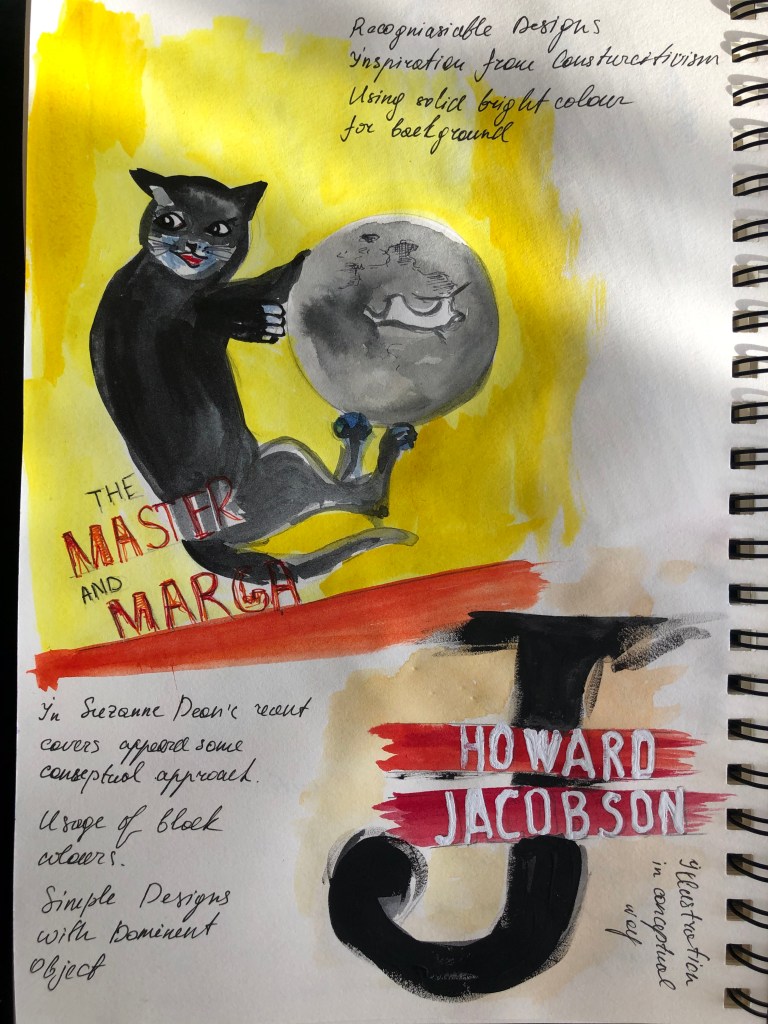 Recogniasicable Designs
Inspiration from Consturctivism
Using solid bright colour
for background
THE
MASTER
AND
MARGA
In Suzanne Dean's recent
covers appeard some
conseptual approach.
Usage of block
colours.
Simple Designs
with Dominent
Object
HOWARD
JACOBSON
J
Illustration
in conceptual
way